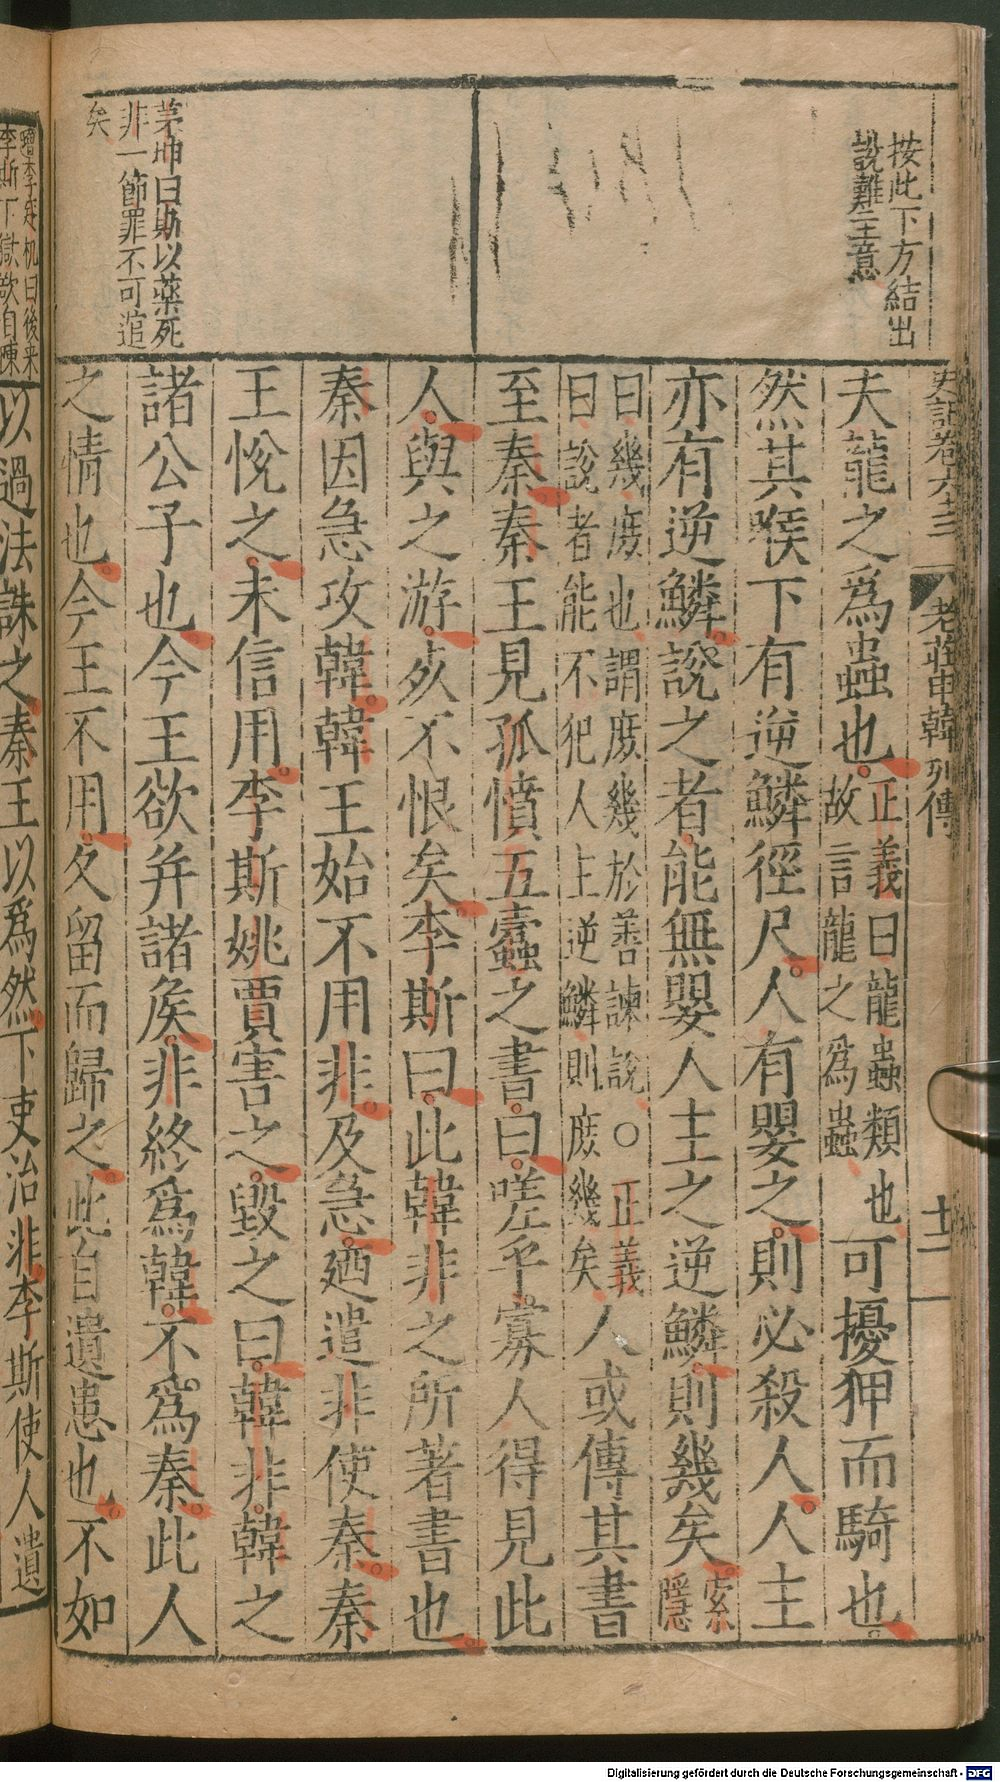 史記卷六十三
老莊申韓列傳
十二
按此下方結出
說難主意
茅坤曰斯以藥死
非一節罪不可逭
矣
夫龍之為蟲也正義曰龍蟲類也故言龍之為蟲可擾狎而騎也
然其喉下有逆鱗徑尺人有嬰之則必殺人人主
亦有逆鱗說之者能無嬰人主之逆鱗則幾矣索隱
曰幾庶也謂庶幾於善諫說○正義曰說者能不犯人主逆鱗則庶幾矣人或傳其書
至秦秦王見孤憤五蠹之書曰嗟乎寡人得見此
人與之游死不恨矣李斯曰此韓非之所著書也
秦因急攻韓韓王始不用非及急廼遣非使秦秦
王悅之未信用李斯姚賈害之毀之曰韓非韓之
諸公子也今王欲幷諸侯非終為韓不為秦此人
之情也今王不用久留而歸之此自遺患也不如
李斯下獄欲自陳
以過法誅之秦王以為然下吏治非李斯使人遺
Digitalisierung gefördert durch die Deutsche Forschungsgemeinschaft - DFG